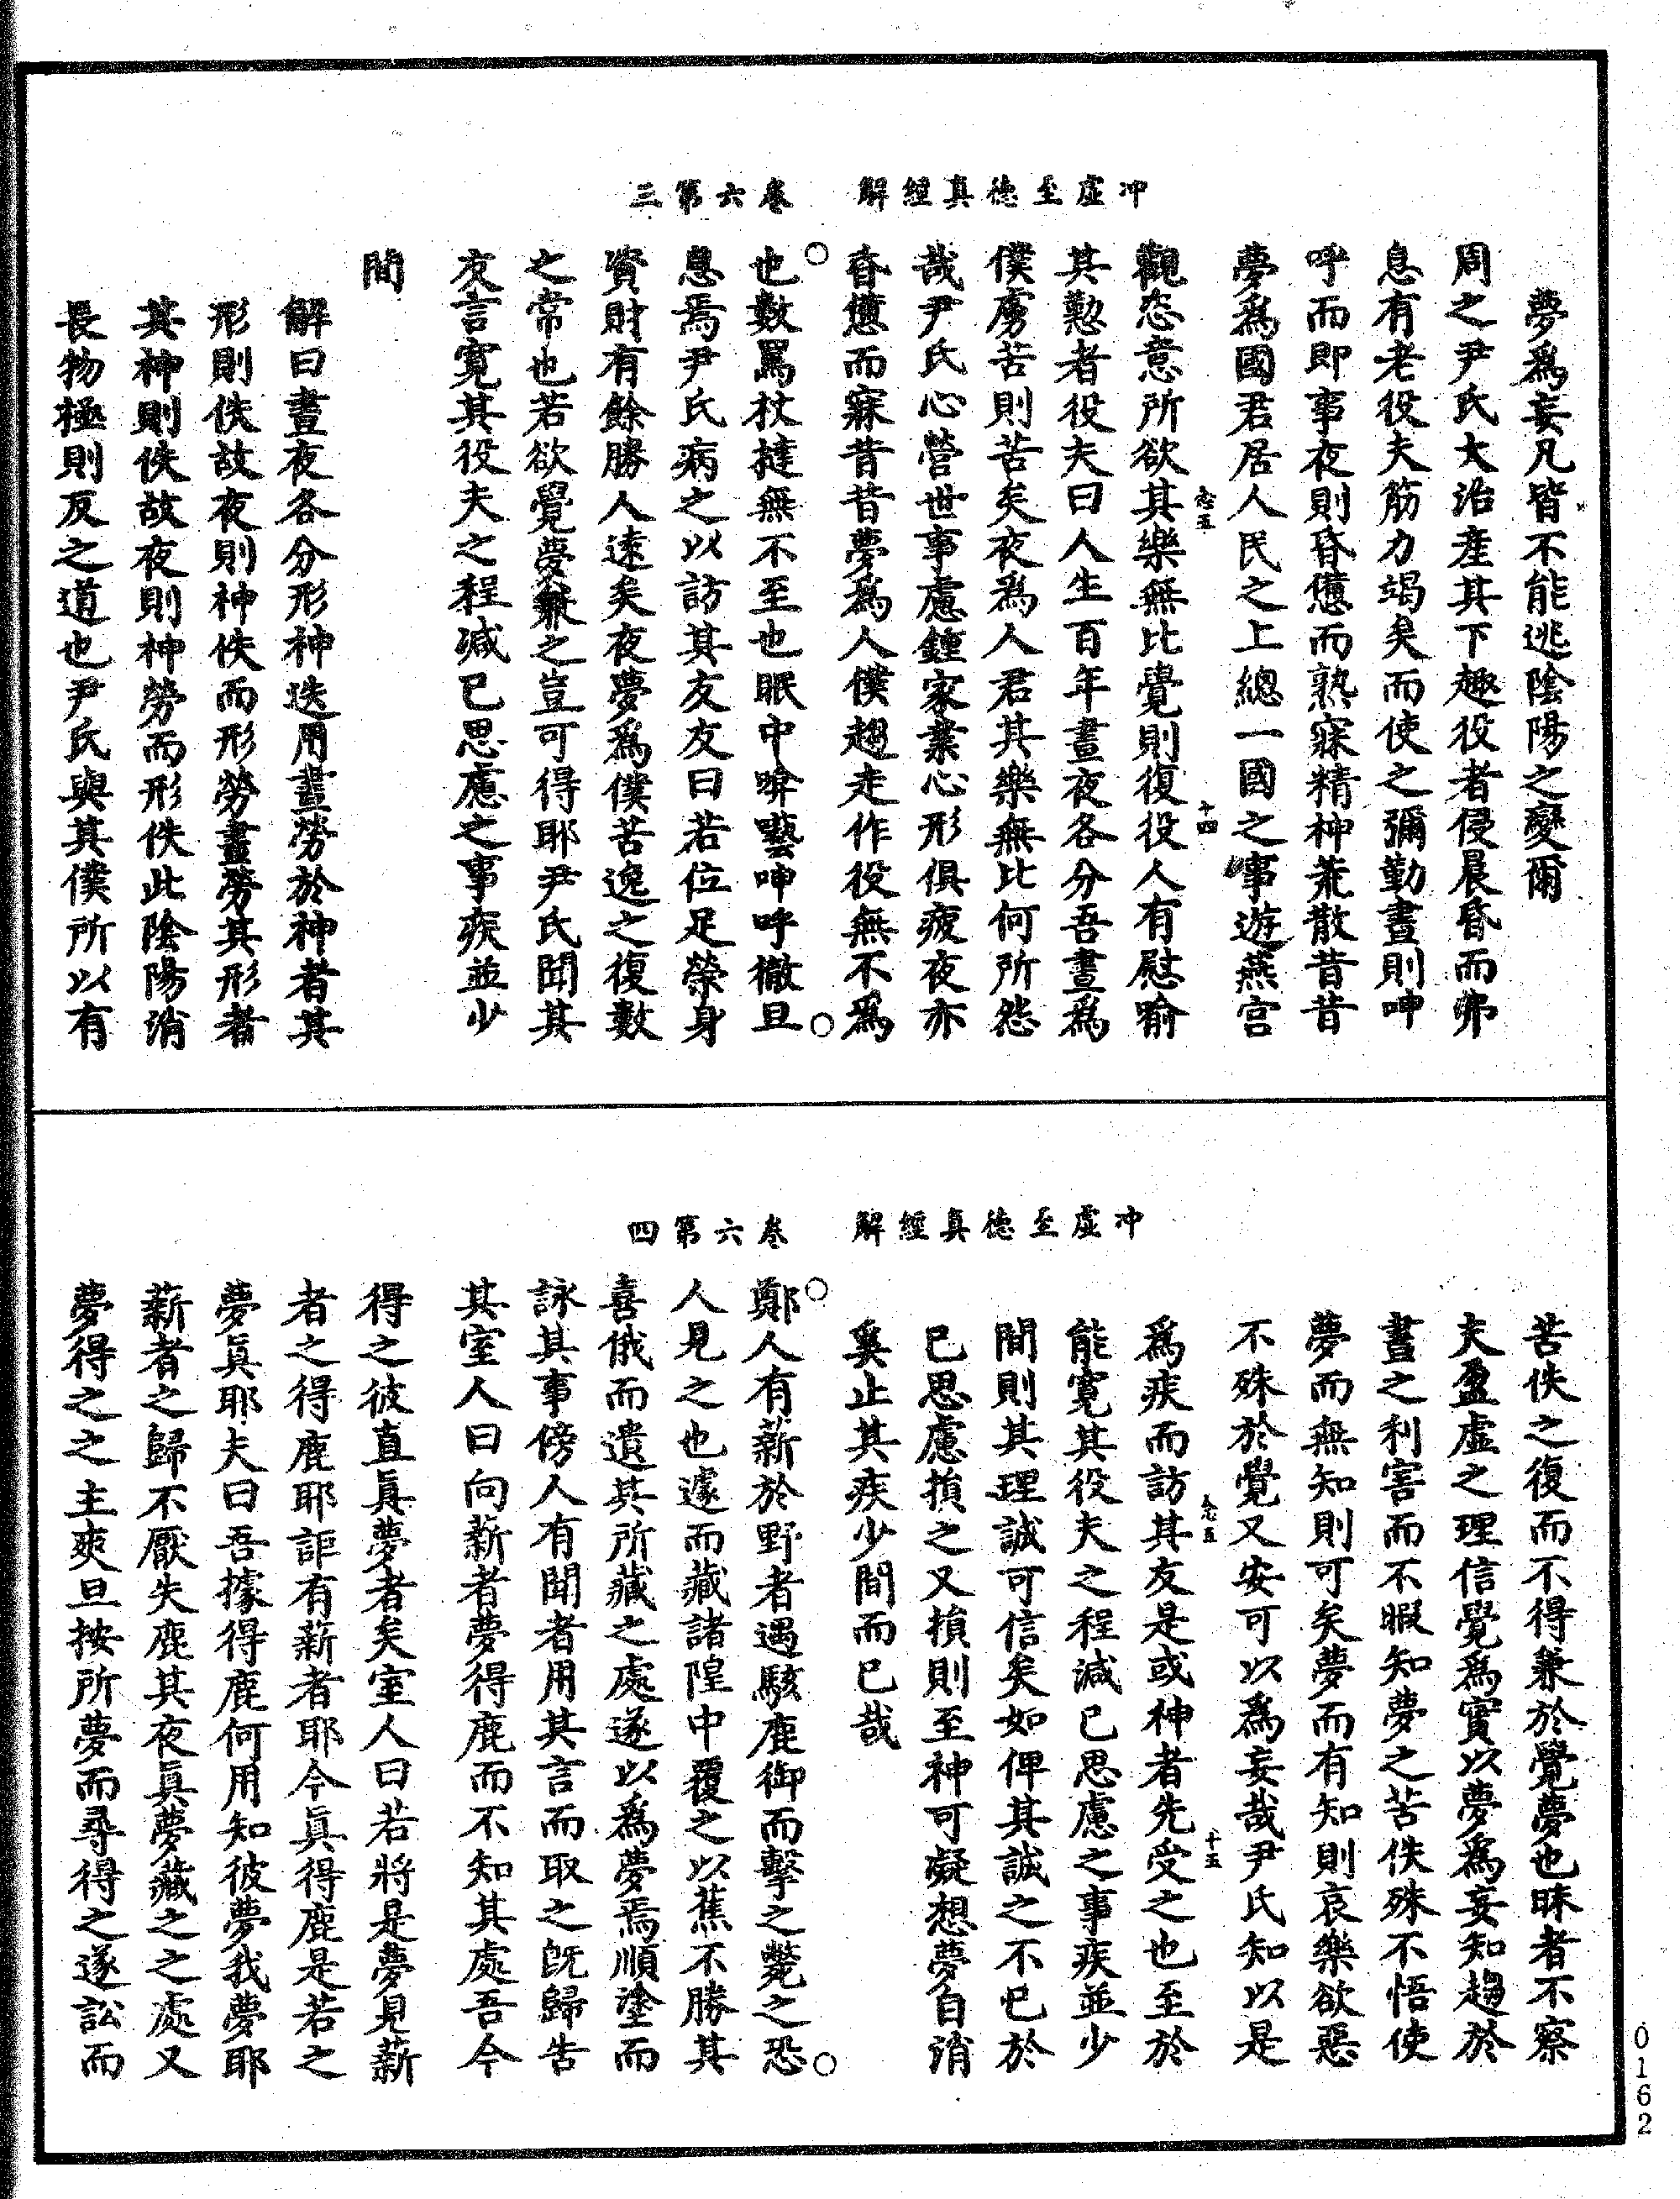 冲虛至德真經解　卷六第三
夢爲妄凡皆不能逃陰陽之變爾
周之尹氏大治産其下趣役者侵晨昏而弗
息有老役夫筋力竭矣而使之彌勤晝則呻
呼而即事夜則昏憊而熟寐精神荒散昔昔
夢爲國君居人民之上總一國之事遊燕宮
觀恣意所欲其樂無比覺則復役人有慰喻
其懃者役夫曰人生百年晝夜各分吾晝爲
僕虜苦則苦矣夜爲人君其樂無比何所怨
哉尹氏心營世事慮鍾家業心形俱疲夜亦
昏憊而寐昔昔夢爲人僕趨走作役無不爲
也數罵杖撻無不至也眠中啽囈呻呼徹旦
息焉尹氏病之以訪其友友曰若位足榮身
資財有餘勝人遠矣夜夢爲僕苦逸之復數
之常也若欲覺夢兼之豈可得耶尹氏聞其
友言寬其役夫之程減已思慮之事疾並少
間
解曰晝夜各分形神迭用晝勞於神者其
形則佚故夜則神佚而形勞晝勞其形者
其神則佚故夜則神勞而形佚此陰陽消
長物極則反之道也尹氏與其僕所以有
冲虛至德真經解　卷六第四
苦佚之復而不得兼於覺夢也昧者不察
夫盈虛之理信覺爲實以夢爲妄知趨於
晝之利害而不暇知夢之苦佚殊不悟使
夢而無知則可矣夢而有知則哀樂欲惡
不殊於覺又安可以爲妄哉尹氏知以是
爲疾而訪其友是或神者先受之也至於
能寬其役夫之程減已思慮之事疾並少
間則其理誠可信矣如俾其誠之不已於
已思慮損之又損則至神可凝想夢自消
奚止其疾少間而已哉
鄭人有薪於野者遇駭鹿御而擊之斃之恐
人見之也遽而藏諸隍中覆之以蕉不勝其
喜俄而遺其所藏之處遂以爲夢焉順塗而
詠其事傍人有聞者用其言而取之旣歸告
其室人曰向薪者夢得鹿而不知其處吾今
得之彼直眞夢者矣室人曰若將是夢見薪
者之得鹿耶詎有薪者耶今眞得鹿是若之
夢眞耶夫曰吾據得鹿何用知彼夢我夢耶
薪者之歸不厭失鹿其夜眞夢藏之之處又
夢得之之主爽旦按所夢而尋得之遂訟而
0162